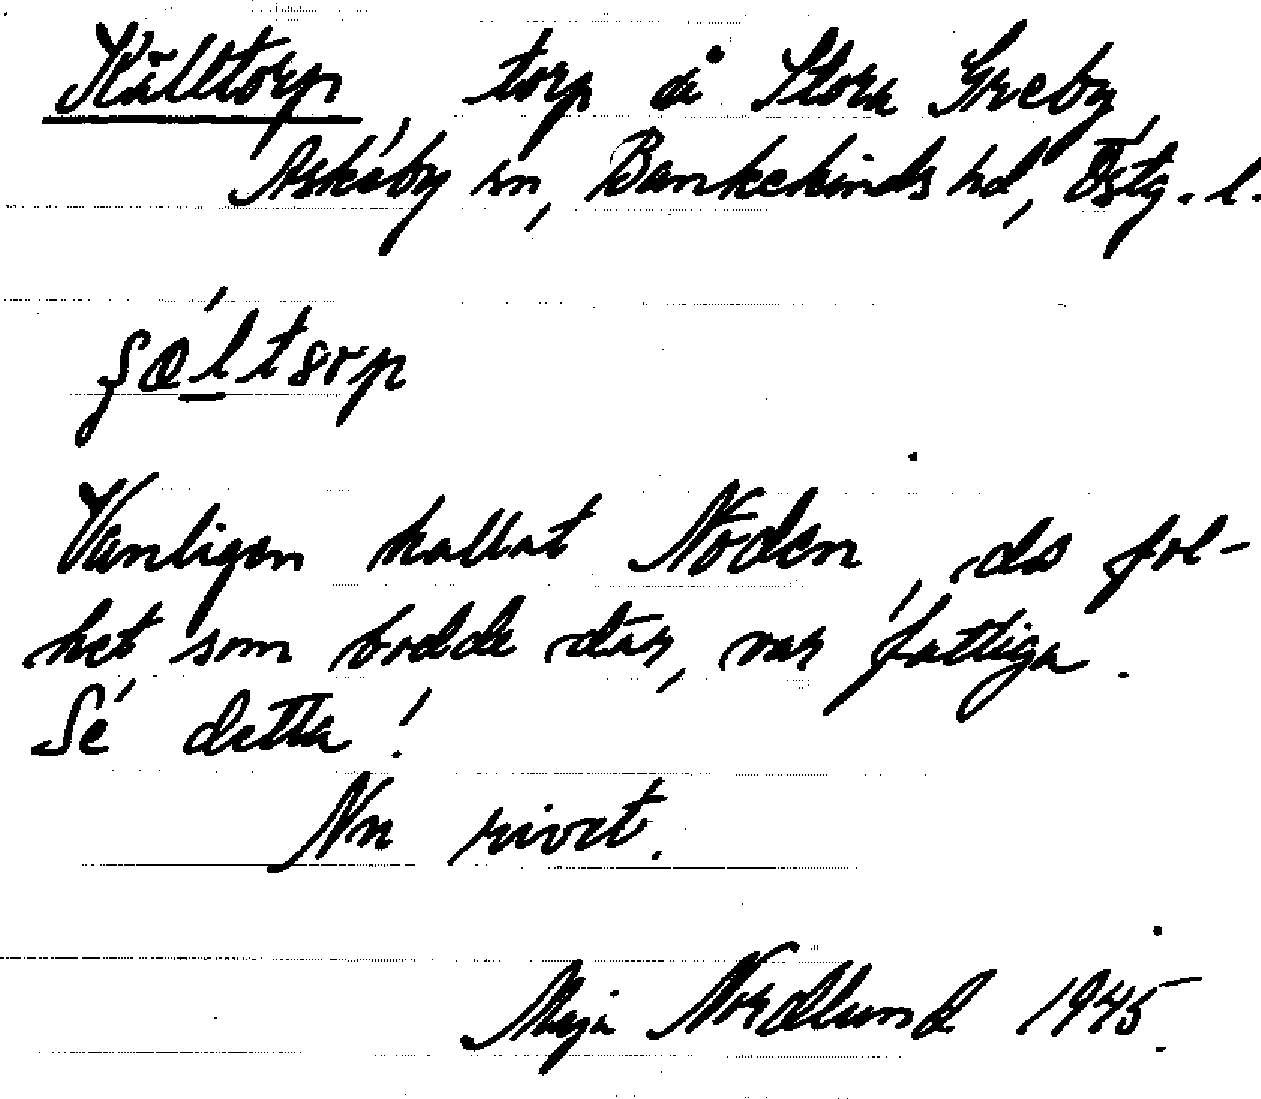 Källtorp, torp å Stora Greby
Askeby sn, Bankekinds hd, Östg. l.
ʃæ̀ltɔrp
Vanligen kallat Nöden, då fol-
ket som bodde där, var fattiga.
Se detta!
Nu rivet.
Maja Nordlund 1945.